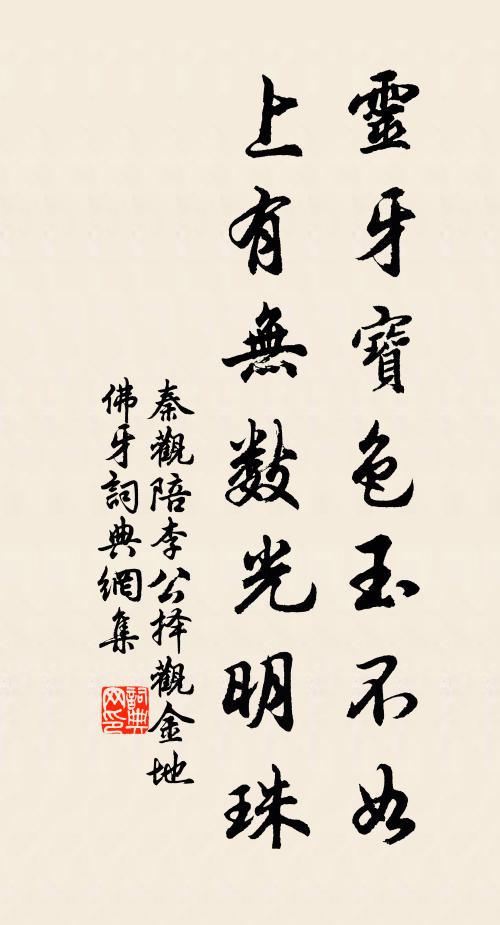 靈牙寶色玉不如
上有無數光明珠
秦觀陪李公择觀金地
佛牙詞典網集
詞典网印